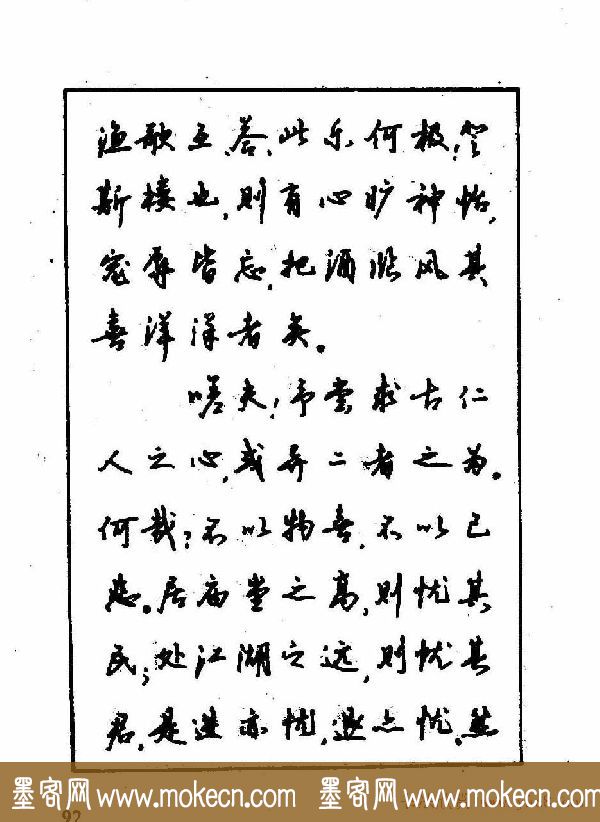 渔歌互答,此乐何极!登
斯楼也,则有心旷神怡,
宠辱皆忘,把酒临风其
喜洋洋者矣。
嗟夫!予尝求古仁
人之心,或异二者之为。
何哉?不以物喜,不以己
悲。居庙堂之高,则忧其
民;处江湖之远,则忧其
君。是进亦忧,退亦忧。然
墨客网 www.mokecn.com 墨客网 www.mokecn.com
92